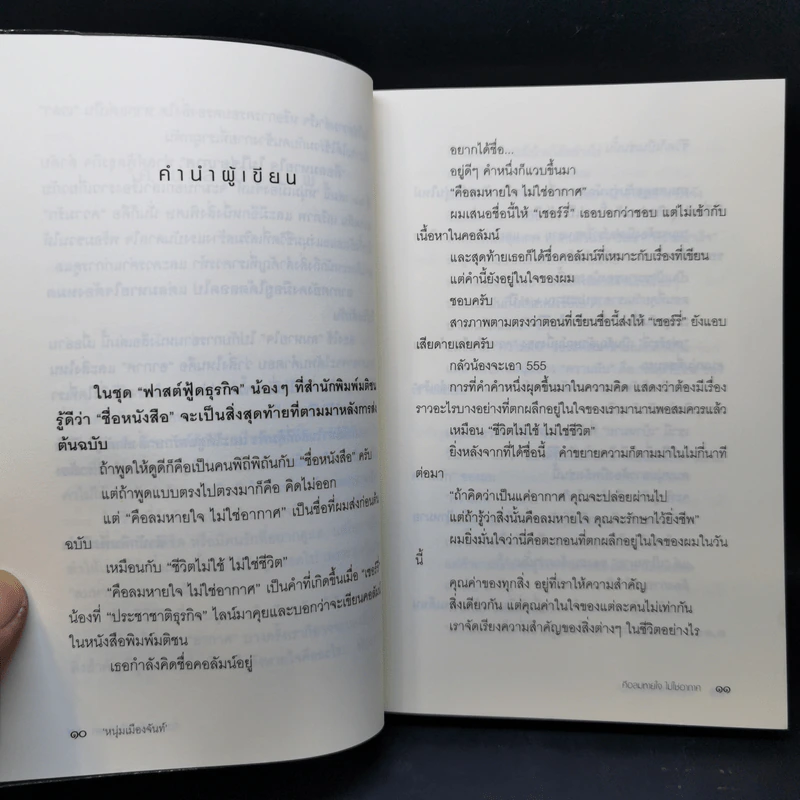 คำนำผู้เขียน
ในชุด “ฟาสต์ฟู้ดธุรกิจ” น้องๆ ที่สำนักพิมพ์มติชน
รู้ดีว่า “ชื่อหนังสือ” จะเป็นสิ่งสุดท้ายที่ตามมาหลังการส่ง
ต้นฉบับ
ถ้าพูดให้ดูดีก็คือเป็นคนพิถีพิถันกับ “ชื่อหนังสือ” ครับ
แต่ถ้าพูดแบบตรงไปตรงมาก็คือ คิดไม่ออก
แต่ “คือลมหายใจ ไม่ใช่อากาศ” เป็นชื่อที่ผมส่งก่อนต้น
ฉบับ
เหมือนกับ “ชีวิตไม่ใช้ ไม่ใช่ชีวิต”
“คือลมหายใจ ไม่ใช่อากาศ” เป็นคำที่เกิดขึ้นเมื่อ “เชอร์รี่”
น้องที่ “ประชาชาติธุรกิจ” ไลน์มาคุยและบอกว่าจะเขียนคอลัมน์
ในหนังสือพิมพ์มติชน
เธอกำลังคิดชื่อคอลัมน์อยู่
๑๐ ‘หนุ่มเมืองจันท์’
อยากได้ชื่อ...
อยู่ดีๆ คำหนึ่งก็แวบขึ้นมา
“คือลมหายใจ ไม่ใช่อากาศ”
ผมเสนอชื่อนี้ให้ “เชอร์รี่” เธอบอกว่าชอบ แต่ไม่เข้ากับ
เนื้อหาในคอลัมน์
และสุดท้ายเธอก็ได้ชื่อคอลัมน์ที่เหมาะกับเรื่องที่เขียน
แต่คำนี้ยังอยู่ในใจของผม
ชอบครับ
สารภาพตามตรงว่าตอนที่เขียนชื่อนี้ส่งให้ “เชอร์รี่” ยังแอบ
เสียดายเลยครับ
กลัวน้องจะเอา 555
การที่คำคำหนึ่งผุดขึ้นมาในความคิด แสดงว่าต้องมีเรื่อง
ราวอะไรบางอย่างที่ตกผลึกอยู่ในใจของเรามานานพอสมควรแล้ว
เหมือน “ชีวิตไม่ใช้ ไม่ใช่ชีวิต”
ยิ่งหลังจากที่ได้ชื่อนี้ คำขยายความก็ตามมาในไม่กี่นาที
ต่อมา
“ถ้าคิดว่าเป็นแค่อากาศ คุณจะปล่อยผ่านไป
แต่ถ้ารู้ว่าสิ่งนั้นคือลมหายใจ คุณจะรักษาไว้ยิ่งชีพ”
ผมยิ่งมั่นใจว่านี่คือตะกอนที่ตกผลึกอยู่ในใจของผมในวัน
นี้
คุณค่าของทุกสิ่ง อยู่ที่เราให้ความสำคัญ
สิ่งเดียวกัน แต่คุณค่าในใจของแต่ละคนไม่เท่ากัน
เราจัดเรียงความสำคัญของสิ่งต่างๆ ในชีวิตอย่างไร
คือลมหายใจ ไม่ใช่อากาศ ๑๑